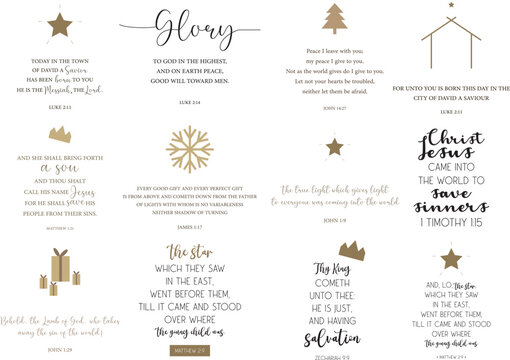 TODAY IN THE TOWN
OF DAVID A Savior
HAS BEEN born TO YOU
HE IS THE Messiah, THE Lord.
LUKE 2:11
Glory
TO GOD IN THE HIGHEST,
AND ON EARTH PEACE,
GOOD WILL TOWARD MEN.
LUKE 2:14
Peace I leave with you;
my peace I give to you.
Not as the world gives do I give to you,
Let not your hearts be troubled,
neither let them be afraid.
JOHN 14:27
FOR UNTO YOU IS BORN THIS DAY IN THE
CITY OF DAVID A SAVIOUR
LUKE 2:11
AND SHE SHALL BRING FORTH
a son
AND THOU SHALT
CALL HIS NAME Jesus
FOR HE SHALL save HIS
PEOPLE FROM THEIR SINS.
MATTHEW 1:21
EVERY GOOD GIFT AND EVERY PERFECT GIFT
IS FROM ABOVE, AND COMETH DOWN FROM THE FATHER
OF LIGHTS WITH WHOM IS NO VARIABLENESS
NEITHER SHADOW OF TURNING
JAMES 1:17
The true light which gives light
to everyone was coming into the world
JOHN 1:9
Christ
Jesus
CAME INTO
THE WORLD TO
save
sinners
1 TIMOTHY 1:15
Behold, the Lamb of God, who takes
away the sin of the world!
JOHN 1:29
the star
WHICH THEY SAW
IN THE EAST,
WENT BEFORE THEM,
TILL IT CAME AND STOOD
OVER WHERE
the young child was
MATTHEW 2:9
Thy King
COMETH
UNTO THEE:
HE IS JUST,
AND HAVING
salvation
ZECHARIAH 9:9
AND, LO, the star,
WHICH THEY SAW
IN THE EAST,
WENT BEFORE THEM,
TILL IT CAME AND STOOD
OVER WHERE
the young child was
MATTHEW 2:9